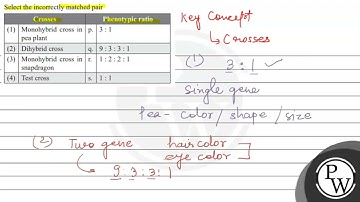 Select the incorrectly matched pair
Crosses Phenotypic ratio
(1) Monohybrid cross in pea plant p. 3 : 1
(2) Dihybrid cross q. 9 : 3 : 3 : 1
(3) Monohybrid cross in snapdragon r. 1 : 2 : 2 : 1
(4) Test cross s. 1 : 1
Key Concept
↳ Crosses
(1) 3 : 1 ✓
Single gene
Pea - color / shape / size
(2) Two gene hair color
eye color
9 : 3 : 3 : 1
PW